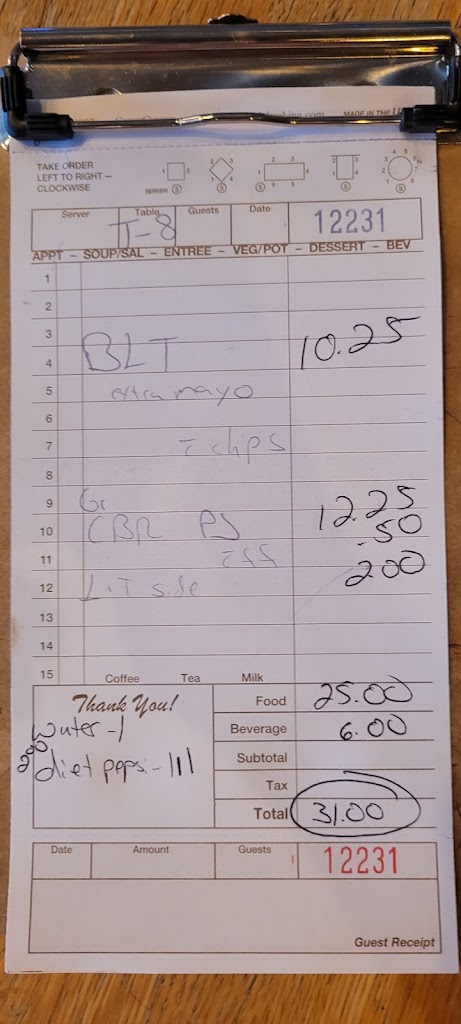 MADE IN THE U
TAKE ORDER
LEFT TO RIGHT –
CLOCKWISE
SERVER S S S S S
Server Table Guests Date
T-8 12231
APPT - SOUP/SAL - ENTREE - VEG/POT - DESSERT - BEV
1
2
3
4 BLT 10.25
5 extra mayo
6
7 = chips
8
9 Gr 12.25
10 CBR PJ .50
11 = FF 2.00
12 L.T side
13
14
15
Coffee Tea Milk
Thank You!
Food 25.00
Water -1
Beverage 6.00
200 diet pepsi - III
Subtotal
Tax
Total 31.00
Date Amount Guests 12231
Guest Receipt